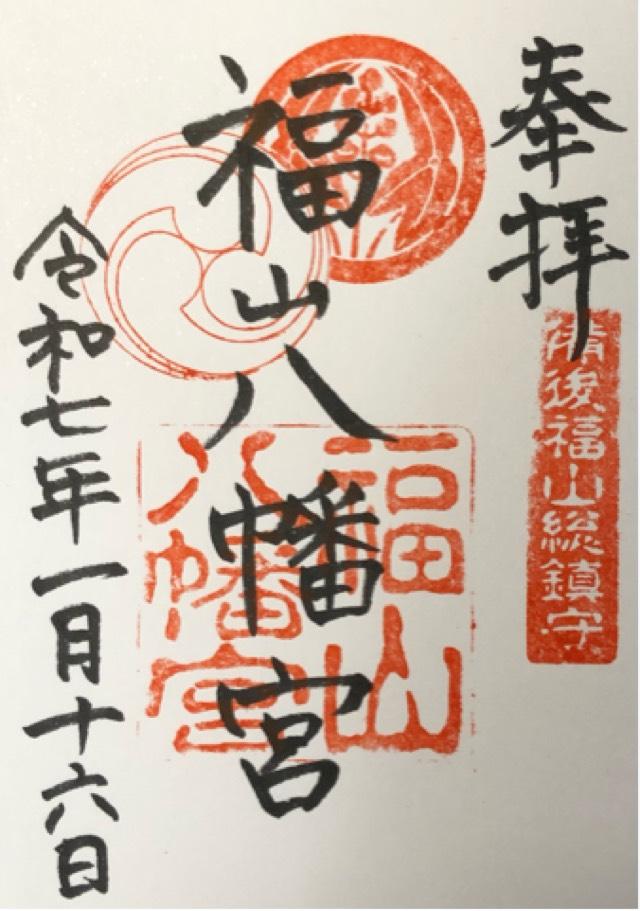 奉拝
備後福山総鎮守
福山八幡宮
福山八幡宮
令和七年一月十六日